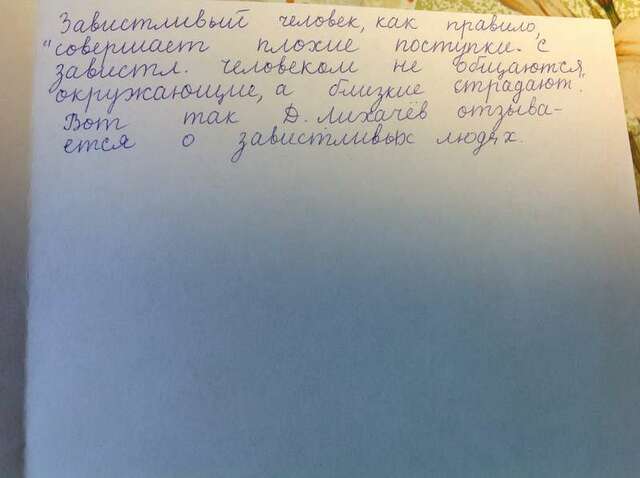 Завистливый человек, как правило,
"совершает плохие поступки. С
завистл. человеком не общаются
окружающие, а близкие страдают."
Вот так Д. Лихачёв отзыва-
ется о завистливых людях.